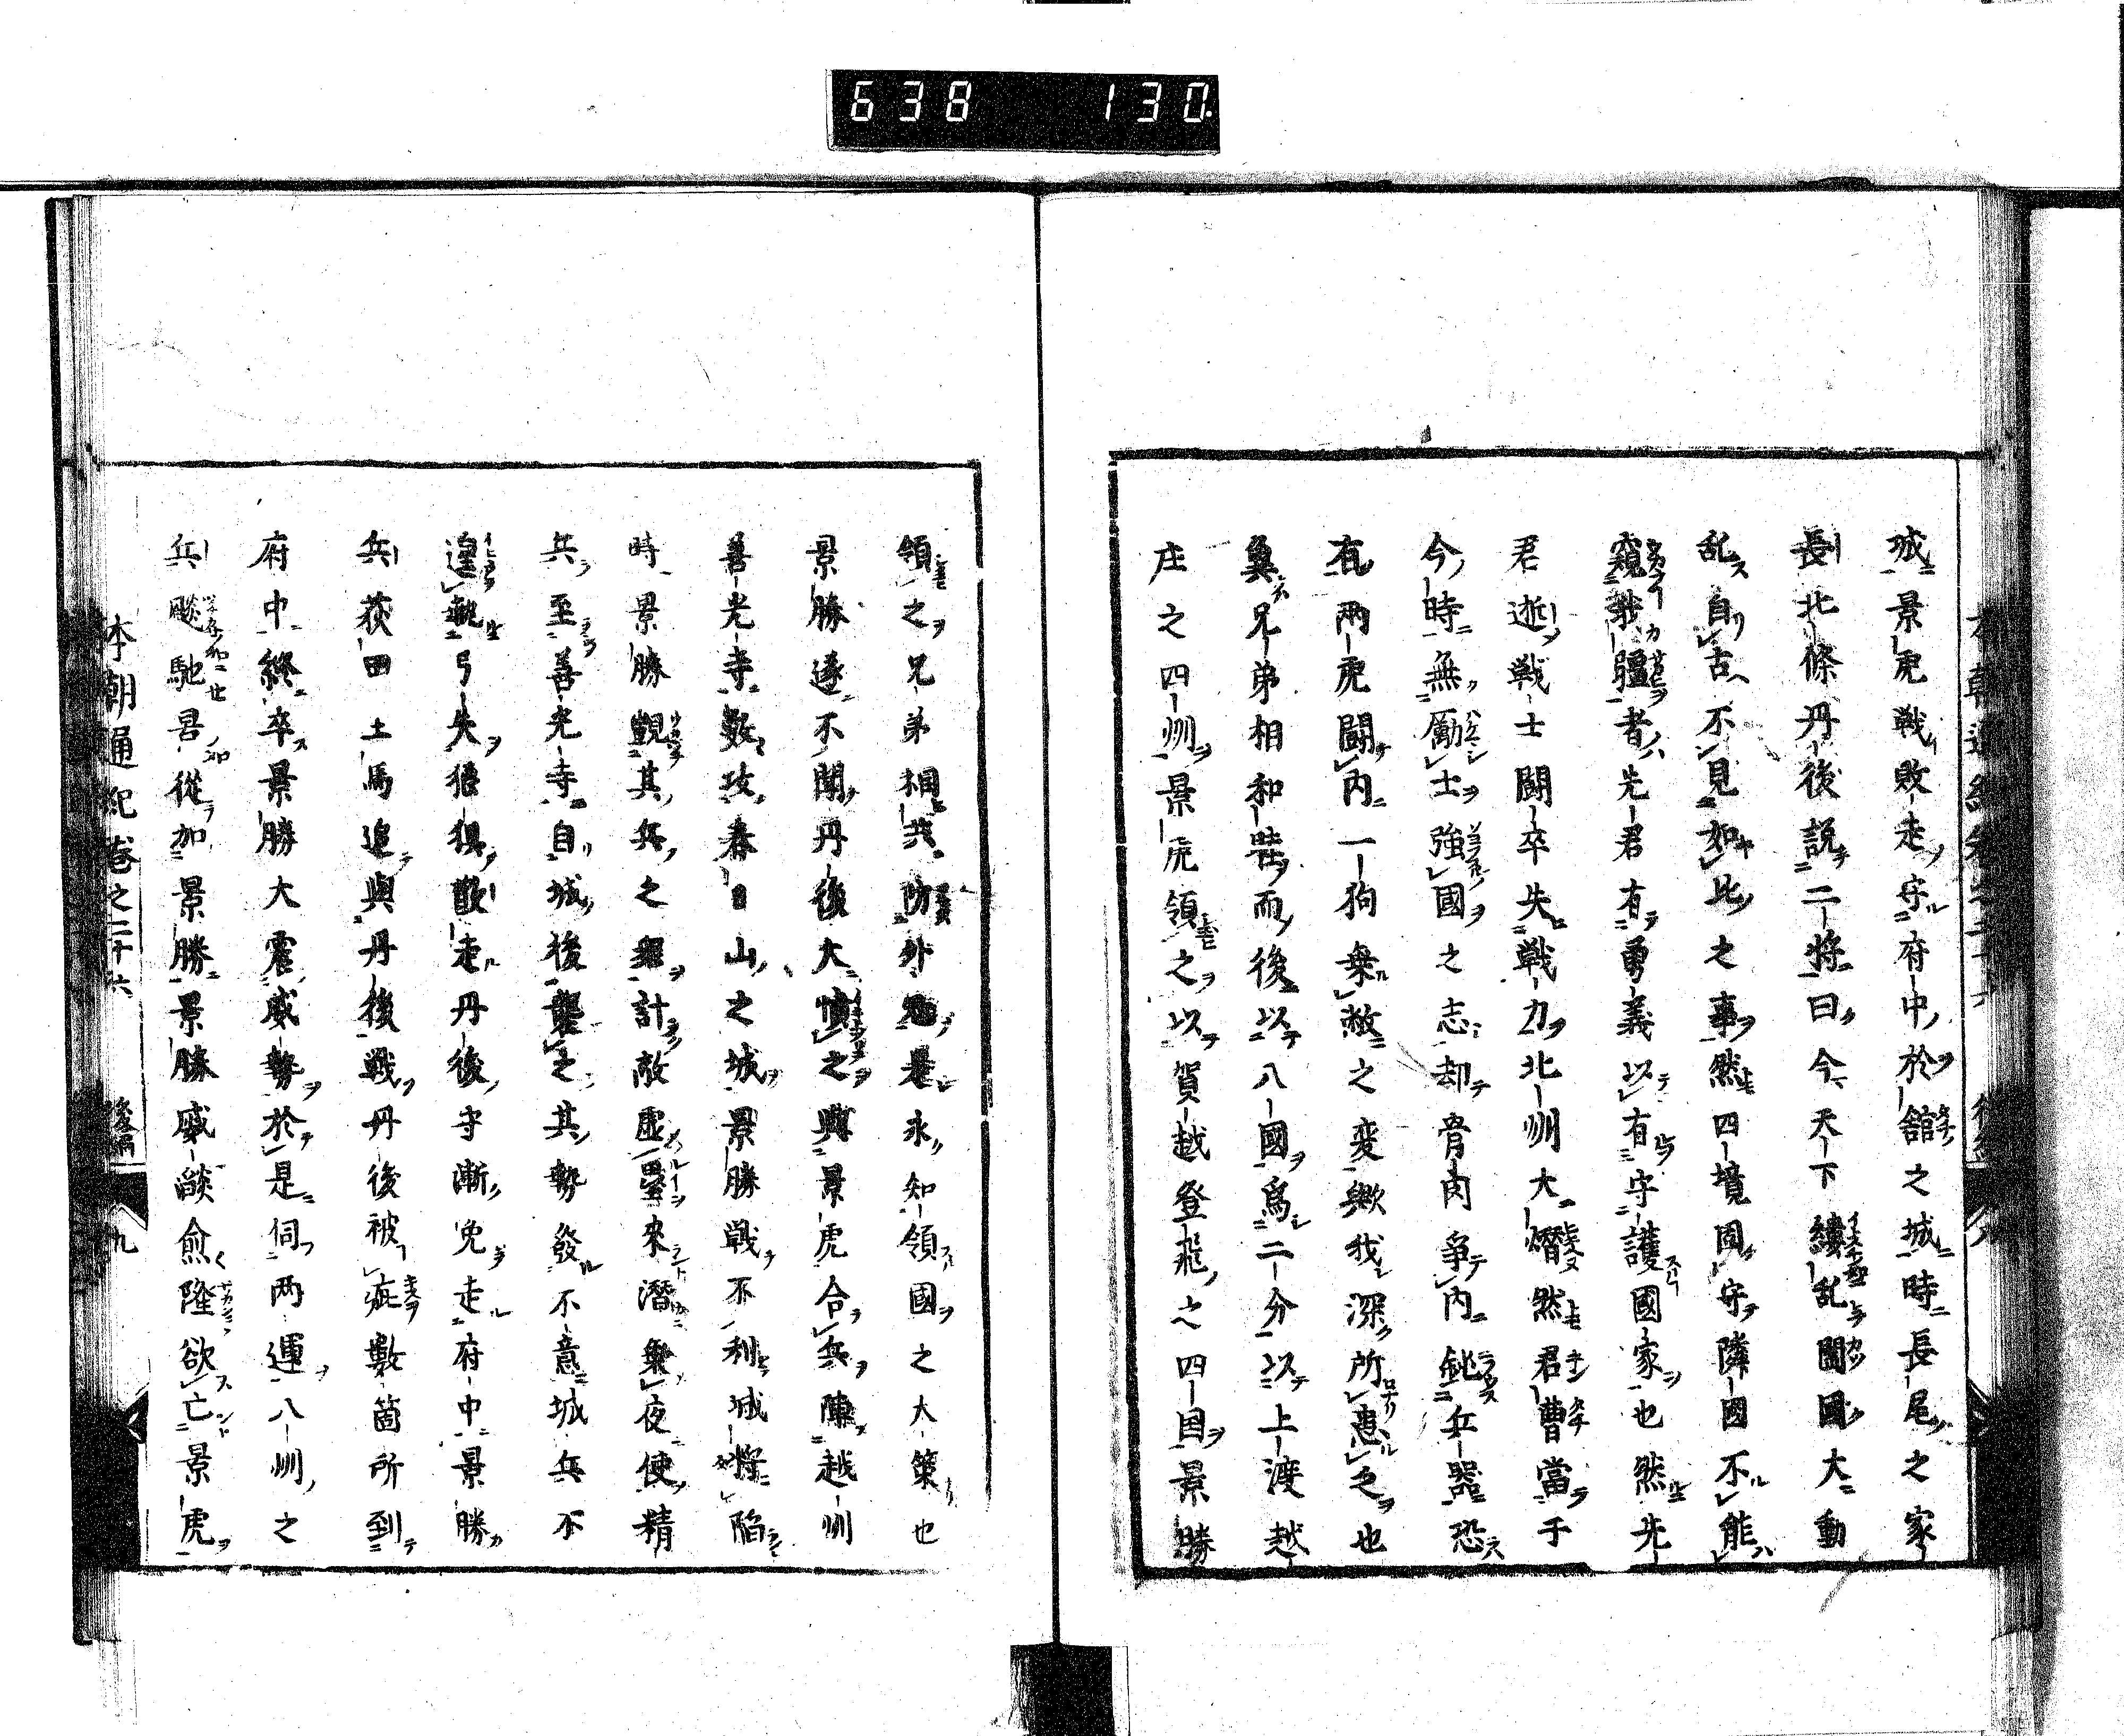 638 130
城景虎戦敗走守府中於舘之城時長尾之家
長北條丹後説二將曰今天下縷乱闔國大動
乱自古不見如此之事然四境固守隣國不能
窺我疆者先君有勇義以有守護國家也然先
君逝戦士闘卒失戦力北州大熸然君曹當于
今時無励士強國之志却骨肉爭内鈍兵器恐
有兩虎闘内一狗乗敝之変歟我深所患之也
冀兄弟相和睦而後以八國爲二分以上渡越
庄之四州景虎領之以賀越登飛之四国景勝
領之兄弟相共防外寇是永知領國之大策也
景勝遂不聞丹後大憤之與景虎合兵陳越州
善光寺數攻春日山之城景勝戦不利城將陥
時景勝覩其兵之羸計敵虚罍來潛乗夜使精
兵至善光寺自城後襲之其勢發不意城兵不
遑執弓矢狼狽散走丹後守漸免走府中景勝
兵荻田土馬追與丹後戦丹後被疵數箇所到
府中終卒景勝大震威勢於是伺両運八州之
兵飈馳星從加景勝景勝威燄愈隆欲亡景虎
本朝通紀巻之二十六 後編 九